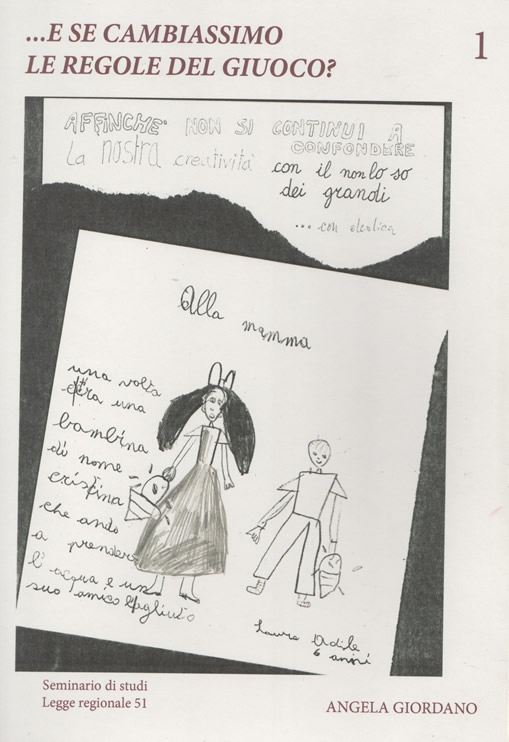 ...E SE CAMBIASSIMO
LE REGOLE DEL GIUOCO?
1
AFFINCHE' NON SI CONTINUI A
CONFONDERE
La nostra creatività
con il non lo so
dei grandi
... con
Alla mamma
una volta
c'era una
bambina
di nome
cristina
che andò
a prendere
l'acqua e un
suo amico l'agliutò
Laura Odile
6 anni
Seminario di studi
Legge regionale 51
ANGELA GIORDANO